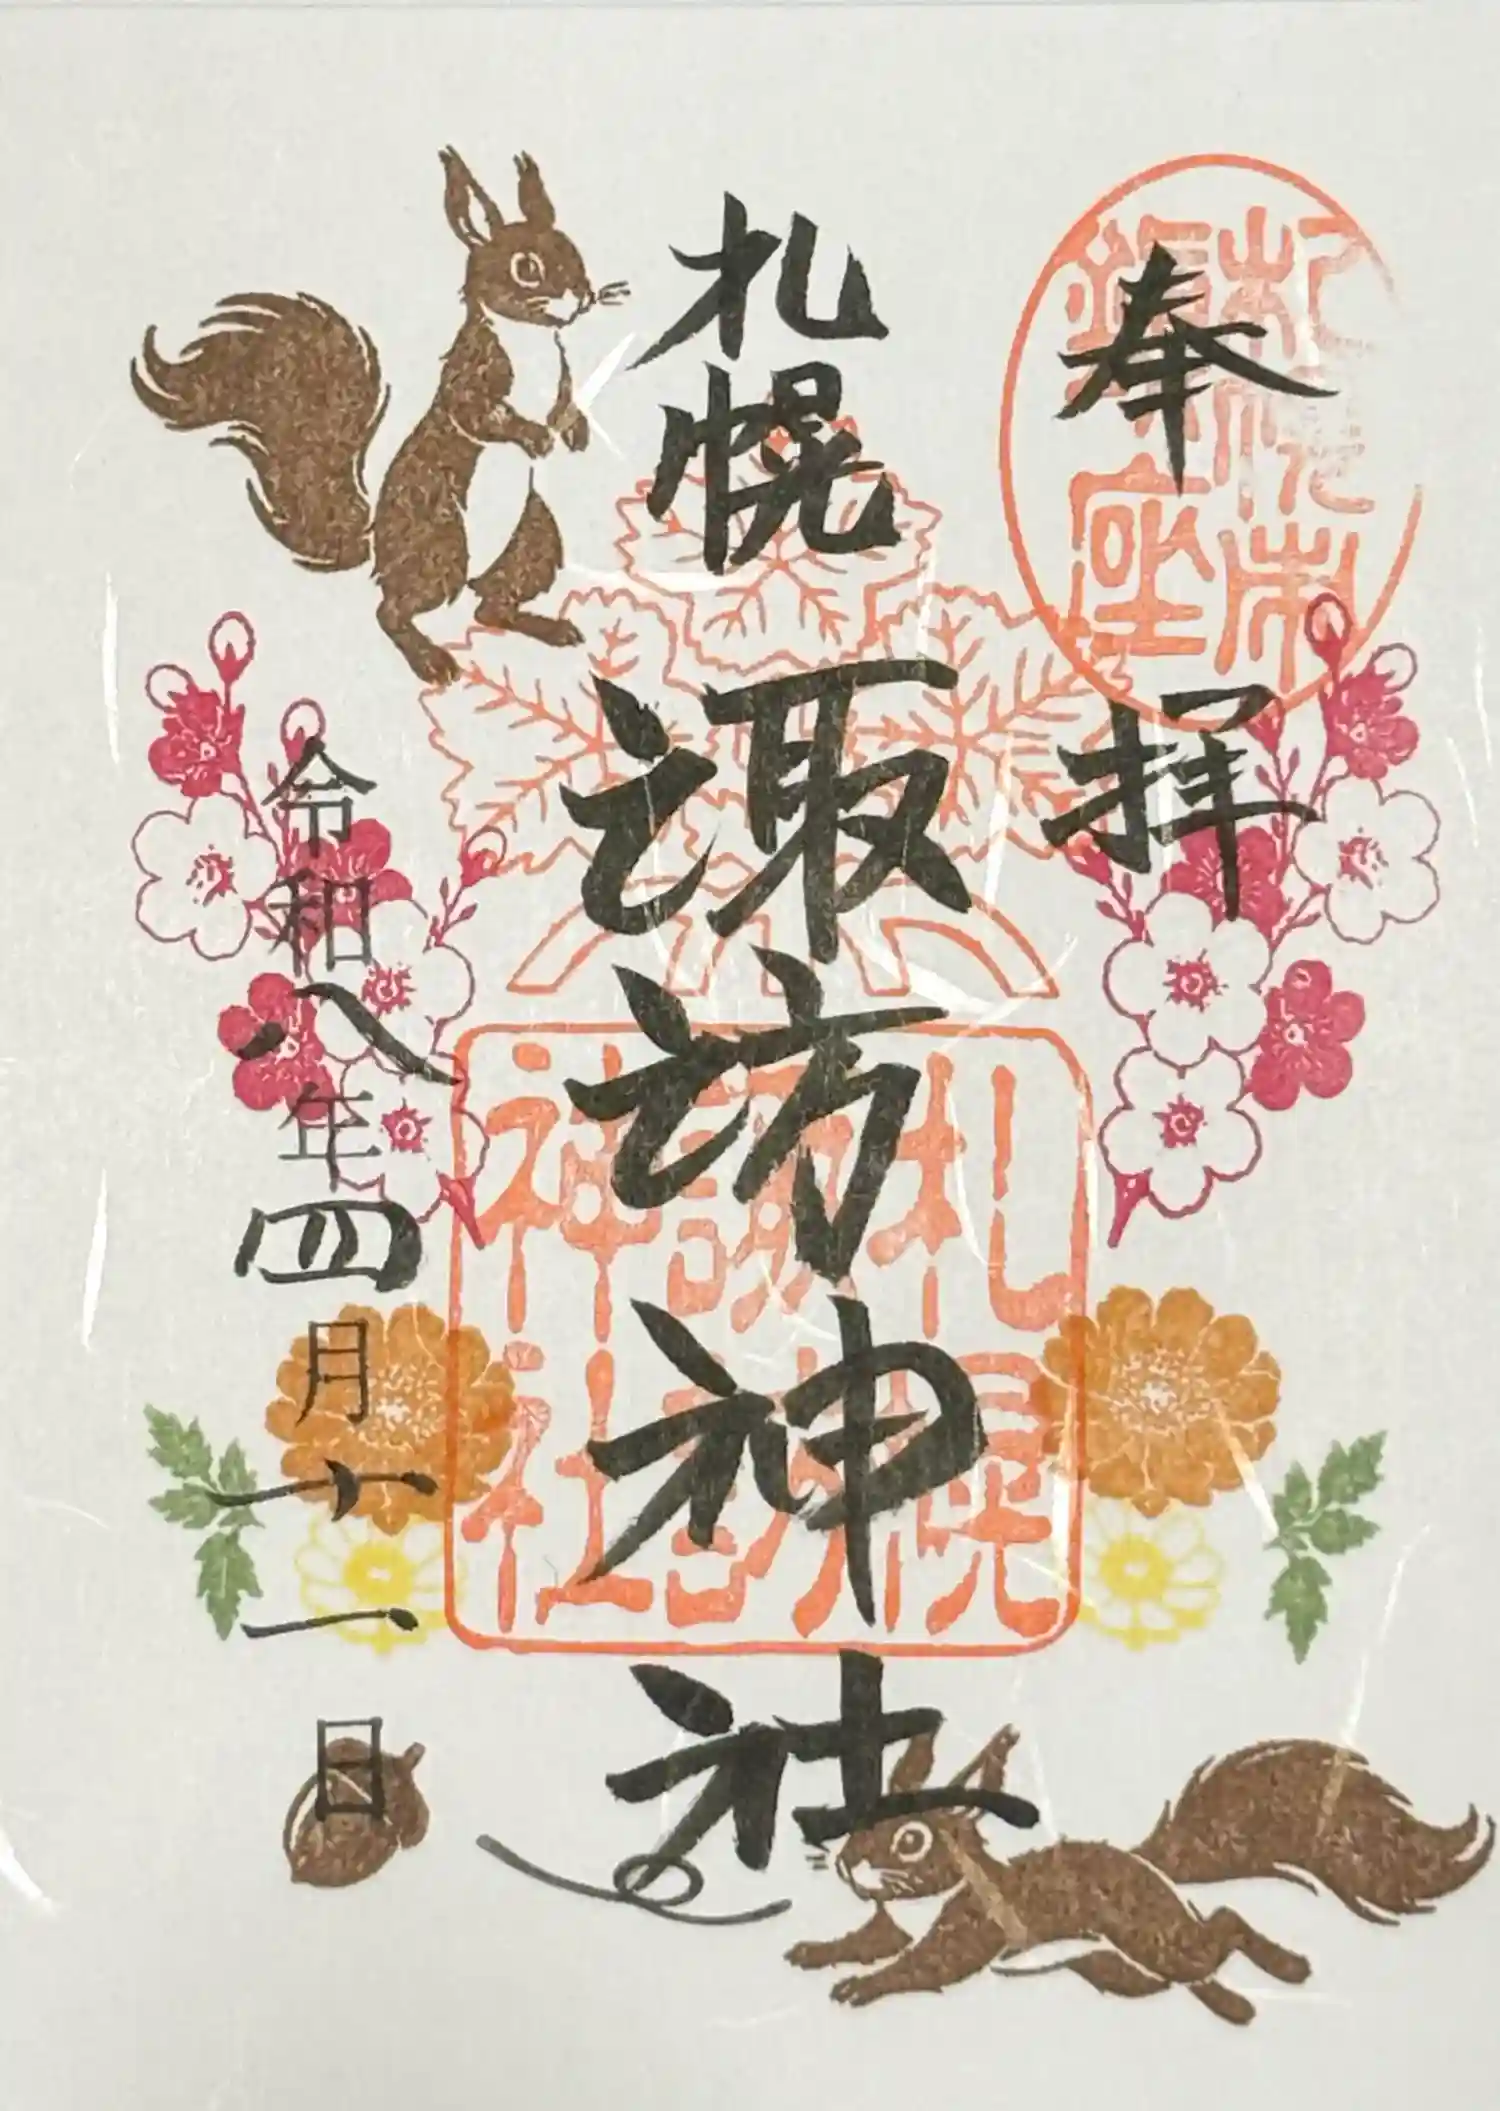 奉拝
札幌諏訪神社
札幌諏訪神社
令和八年四月十一日